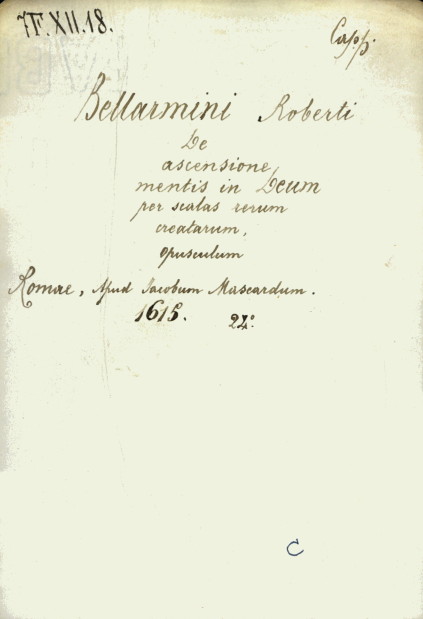 71.XII.18.
Bellarmini Roberti
De
ascensione
mentis in Deum
per scalas rerum
creatarum,
opusculum
Romae, Apud Jacobum Mascardum.
1615. 24.º
C